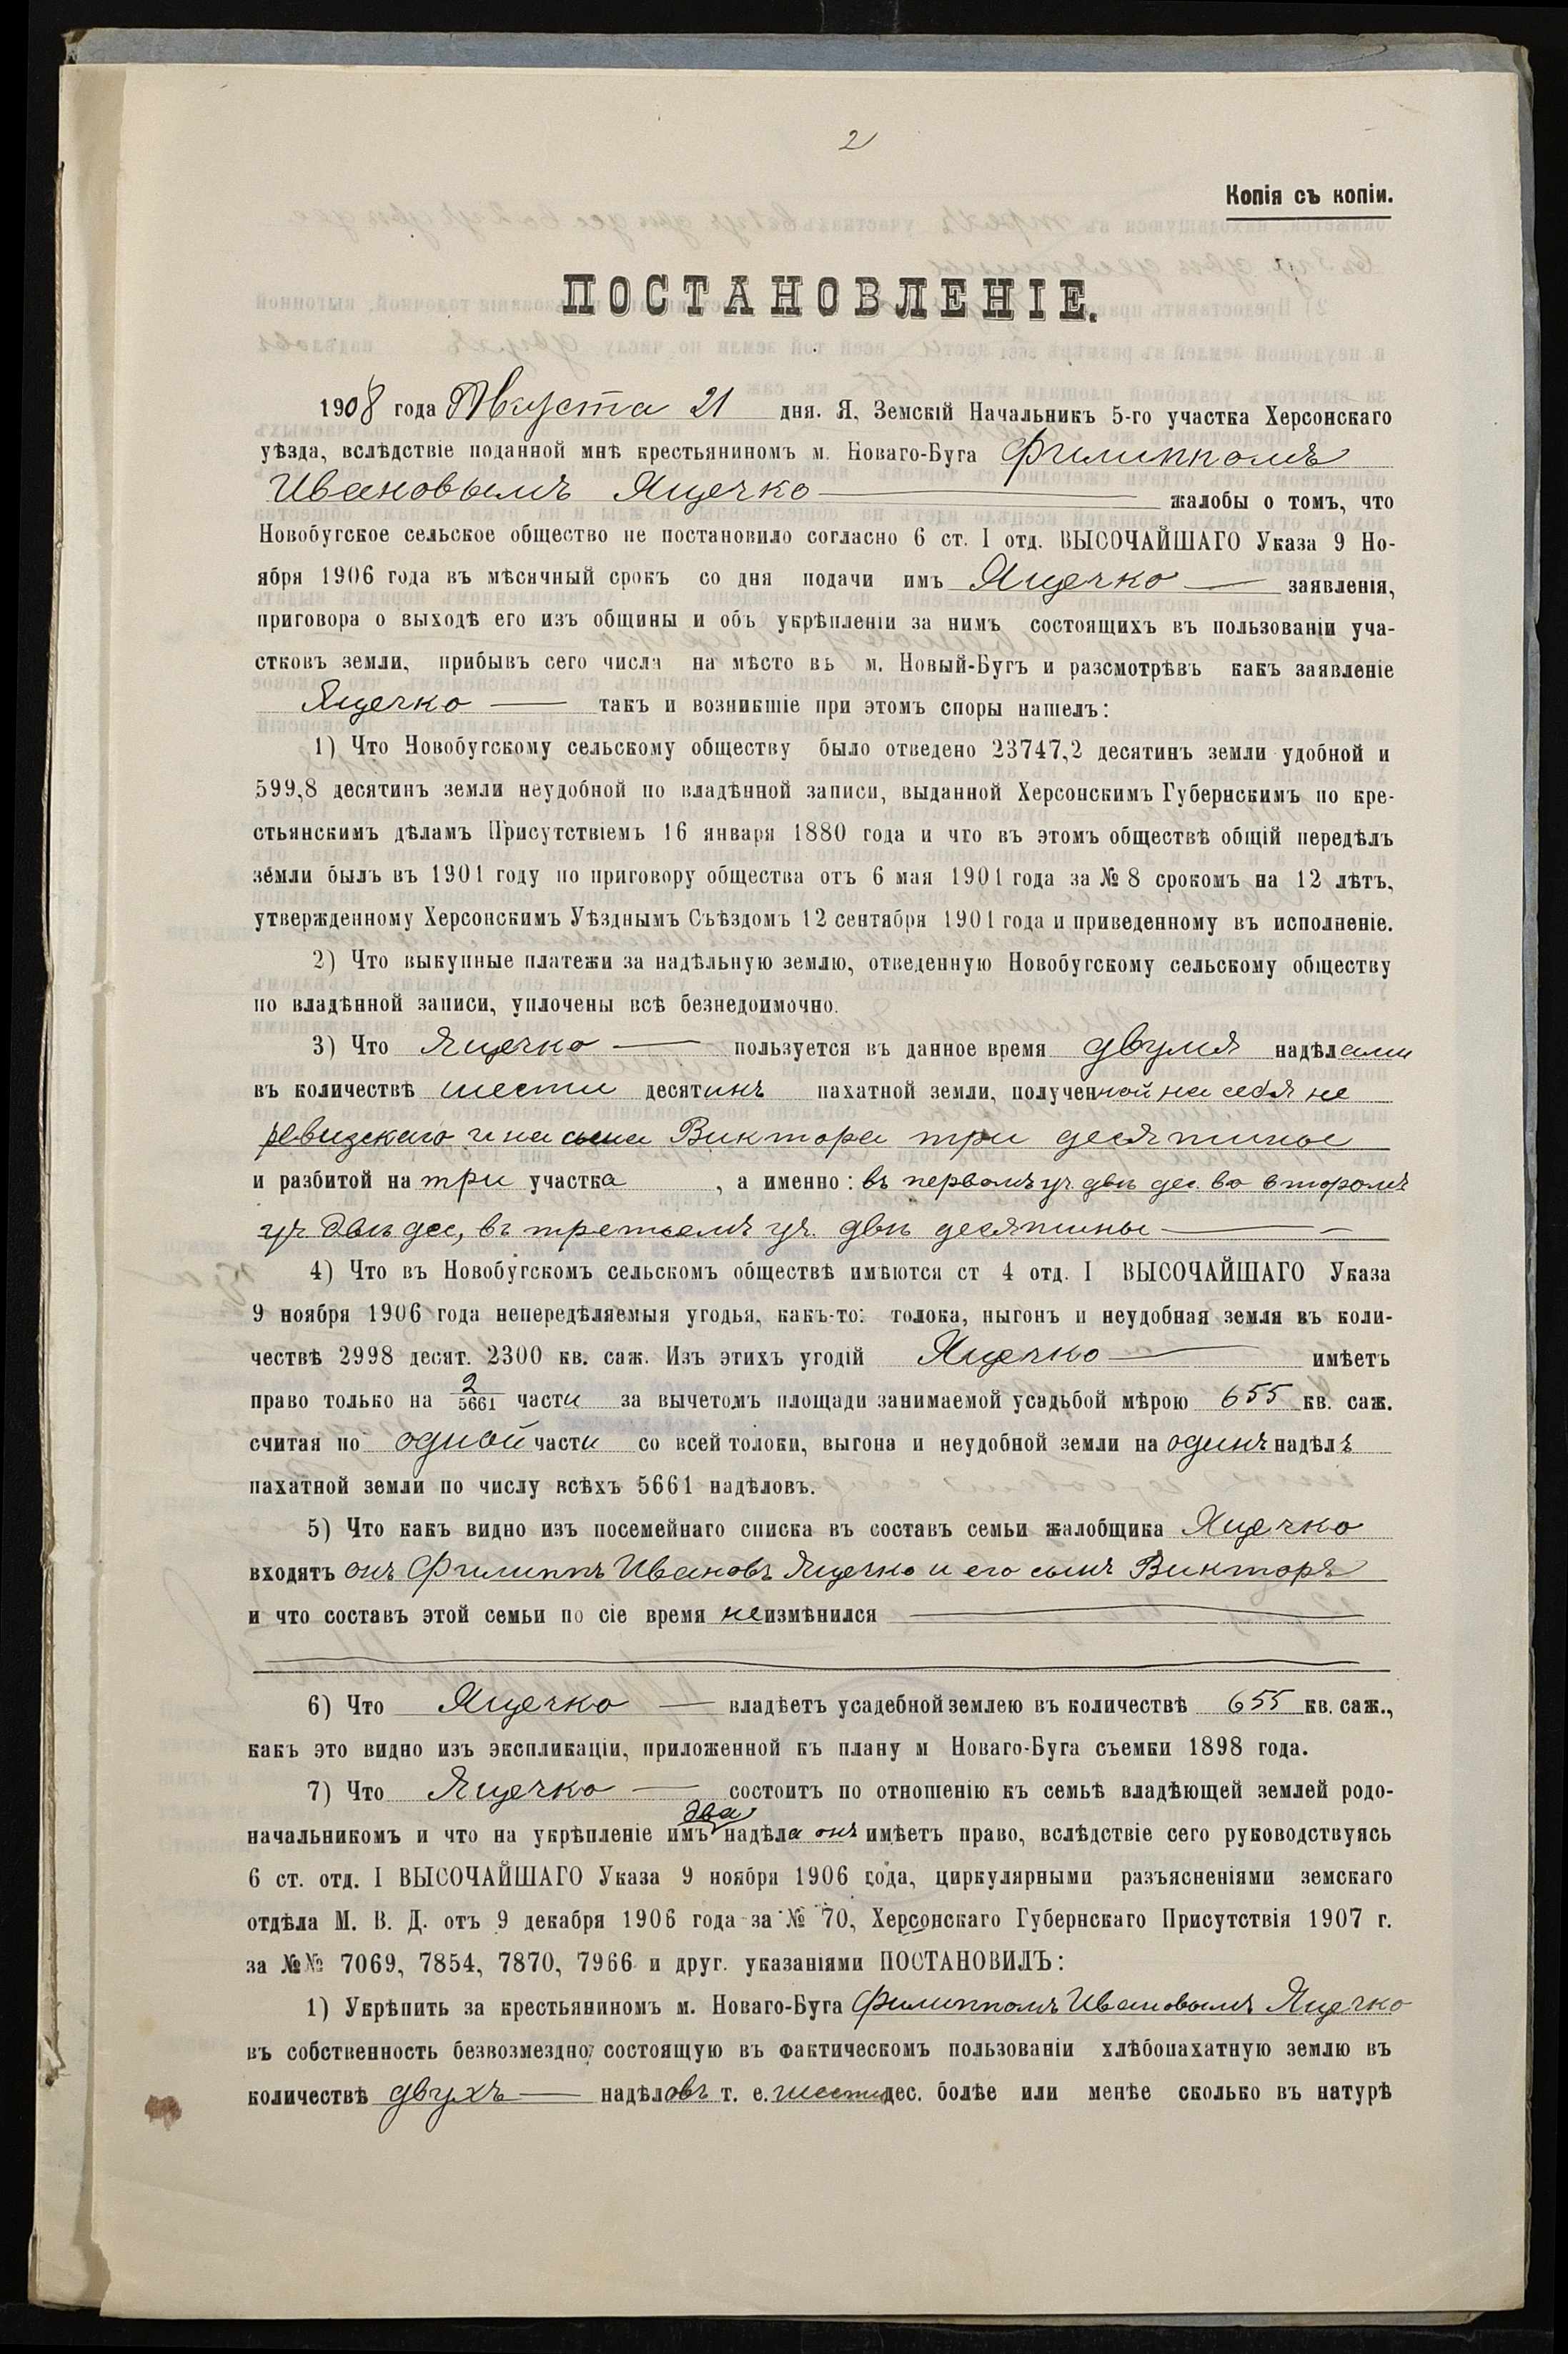 2
Копія съ копіи.
ПОСТАНОВЛЕНІЕ.
1908 года Августа 21 дня. Я, Земскій Начальникъ 5-го участка Херсонскаго
уѣзда, вслѣдствіе поданной мнѣ крестьяниномъ м. Новаго-Буга Филиппомъ
Ивановымъ Ящечко жалобы о томъ, что
Новобугское сельское общество не постановило согласно 6 ст. I отд. ВЫСОЧАЙШАГО Указа 9 Но-
ября 1906 года въ мѣсячный срокъ со дня подачи имъ Ящечко заявленія,
приговора о выходѣ его изъ общины и объ укрѣпленіи за нимъ состоящихъ въ пользованіи уча-
стковъ земли, прибывъ сего числа на мѣсто въ м. Новый-Бугъ и разсмотрѣвъ какъ заявленіе
Ящечко такъ и возникшіе при этомъ споры нашелъ:
1) Что Новобугскому сельскому обществу было отведено 23747,2 десятинъ земли удобной и
599,8 десятинъ земли неудобной по владѣнной записи, выданной Херсонскимъ Губернскимъ по кре-
стьянскимъ дѣламъ Присутствіемъ 16 января 1880 года и что въ этомъ обществѣ общій передѣлъ
земли былъ въ 1901 году по приговору общества отъ 6 мая 1901 года за № 8 срокомъ на 12 лѣтъ,
утвержденному Херсонскимъ Уѣзднымъ Съѣздомъ 12 сентября 1901 года и приведенному въ исполненіе.
2) Что выкупные платежи за надѣльную землю, отведенную Новобугскому сельскому обществу
по владѣнной записи, уплочены всѣ безнедоимочно.
3) Что Ящечко пользуется въ данное время двумя надѣлами
въ количествѣ шести десятинъ пахатной земли, полученной на себя не
ревизскаго и на сына Виктора три десятины
и разбитой на три участка, а именно: въ первомъ уч. двѣ дес. во второмъ
уч. двѣ дес, въ третьемъ уч. двѣ десятины
4) Что въ Новобугскомъ сельскомъ обществѣ имѣются ст 4 отд. I ВЫСОЧАЙШАГО Указа
9 ноября 1906 года непередѣляемыя угодья, какъ-то: толока, ныгонъ и неудобная земля въ коли-
чествѣ 2998 десят. 2300 кв. саж. Изъ этихъ угодій Ящечко имѣетъ
право только на 2/5661 части за вычетомъ площади занимаемой усадьбой мѣрою 655 кв. саж.
считая по одной части со всей толоки, выгона и неудобной земли на одинъ надѣлъ
пахатной земли по числу всѣхъ 5661 надѣловъ.
5) Что какъ видно изъ посемейнаго списка въ составъ семьи жалобщика Ящечко
входятъ онъ Филиппъ Ивановъ Ящечко и его сынъ Викторъ
и что составъ этой семьи по сіе время неизмѣнился
6) Что Ящечко владѣетъ усадебной землею въ количествѣ 655 кв. саж.,
какъ это видно изъ экспликаціи, приложенной къ плану м Новаго-Буга съемки 1898 года.
7) Что Ящечко состоитъ по отношенію къ семьѣ владѣющей землей родо-
начальникомъ и что на укрѣпленіе имъ два надѣла онъ имѣетъ право, вслѣдствіе сего руководствуясь
6 ст. отд. I ВЫСОЧАЙШАГО Указа 9 ноября 1906 года, циркулярными разъясненіями земскаго
отдѣла М. В. Д. отъ 9 декабря 1906 года за № 70, Херсонскаго Губернскаго Присутствія 1907 г.
за №№ 7069, 7854, 7870, 7966 и друг. указаніями ПОСТАНОВИЛЪ:
1) Укрѣпить за крестьяниномъ м. Новаго-Буга Филиппомъ Ивановымъ Ящечко
въ собственность безвозмездно, состоящую въ фактическомъ пользованіи хлѣбопахатную землю въ
количествѣ двухъ надѣловъ т. е. шести дес. болѣе или менѣе сколько въ натурѣ